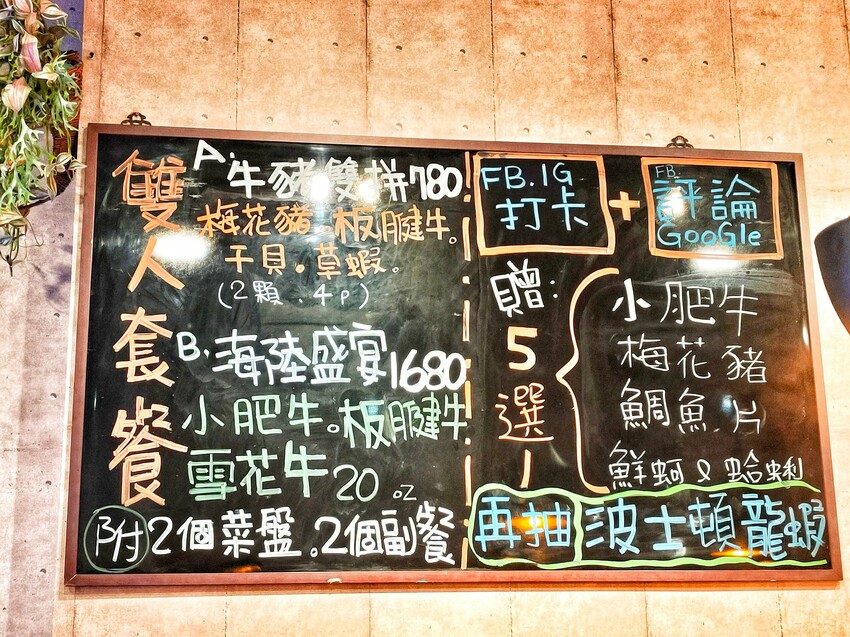 雙人套餐
A. 牛豬雙拼780
梅花豬 板腱牛。
干貝。草蝦。
(2顆.4p)
B. 海陸盛宴1680
小肥牛。板腱牛
雪花牛20oz
附2個菜盤。2個副餐
FB.IG
打卡
+
FB.
評論
GooGle
贈:
5選1
小肥牛
梅花豬
鯛魚.片
鮮蚵&蛤蜊
再抽 波士頓龍蝦